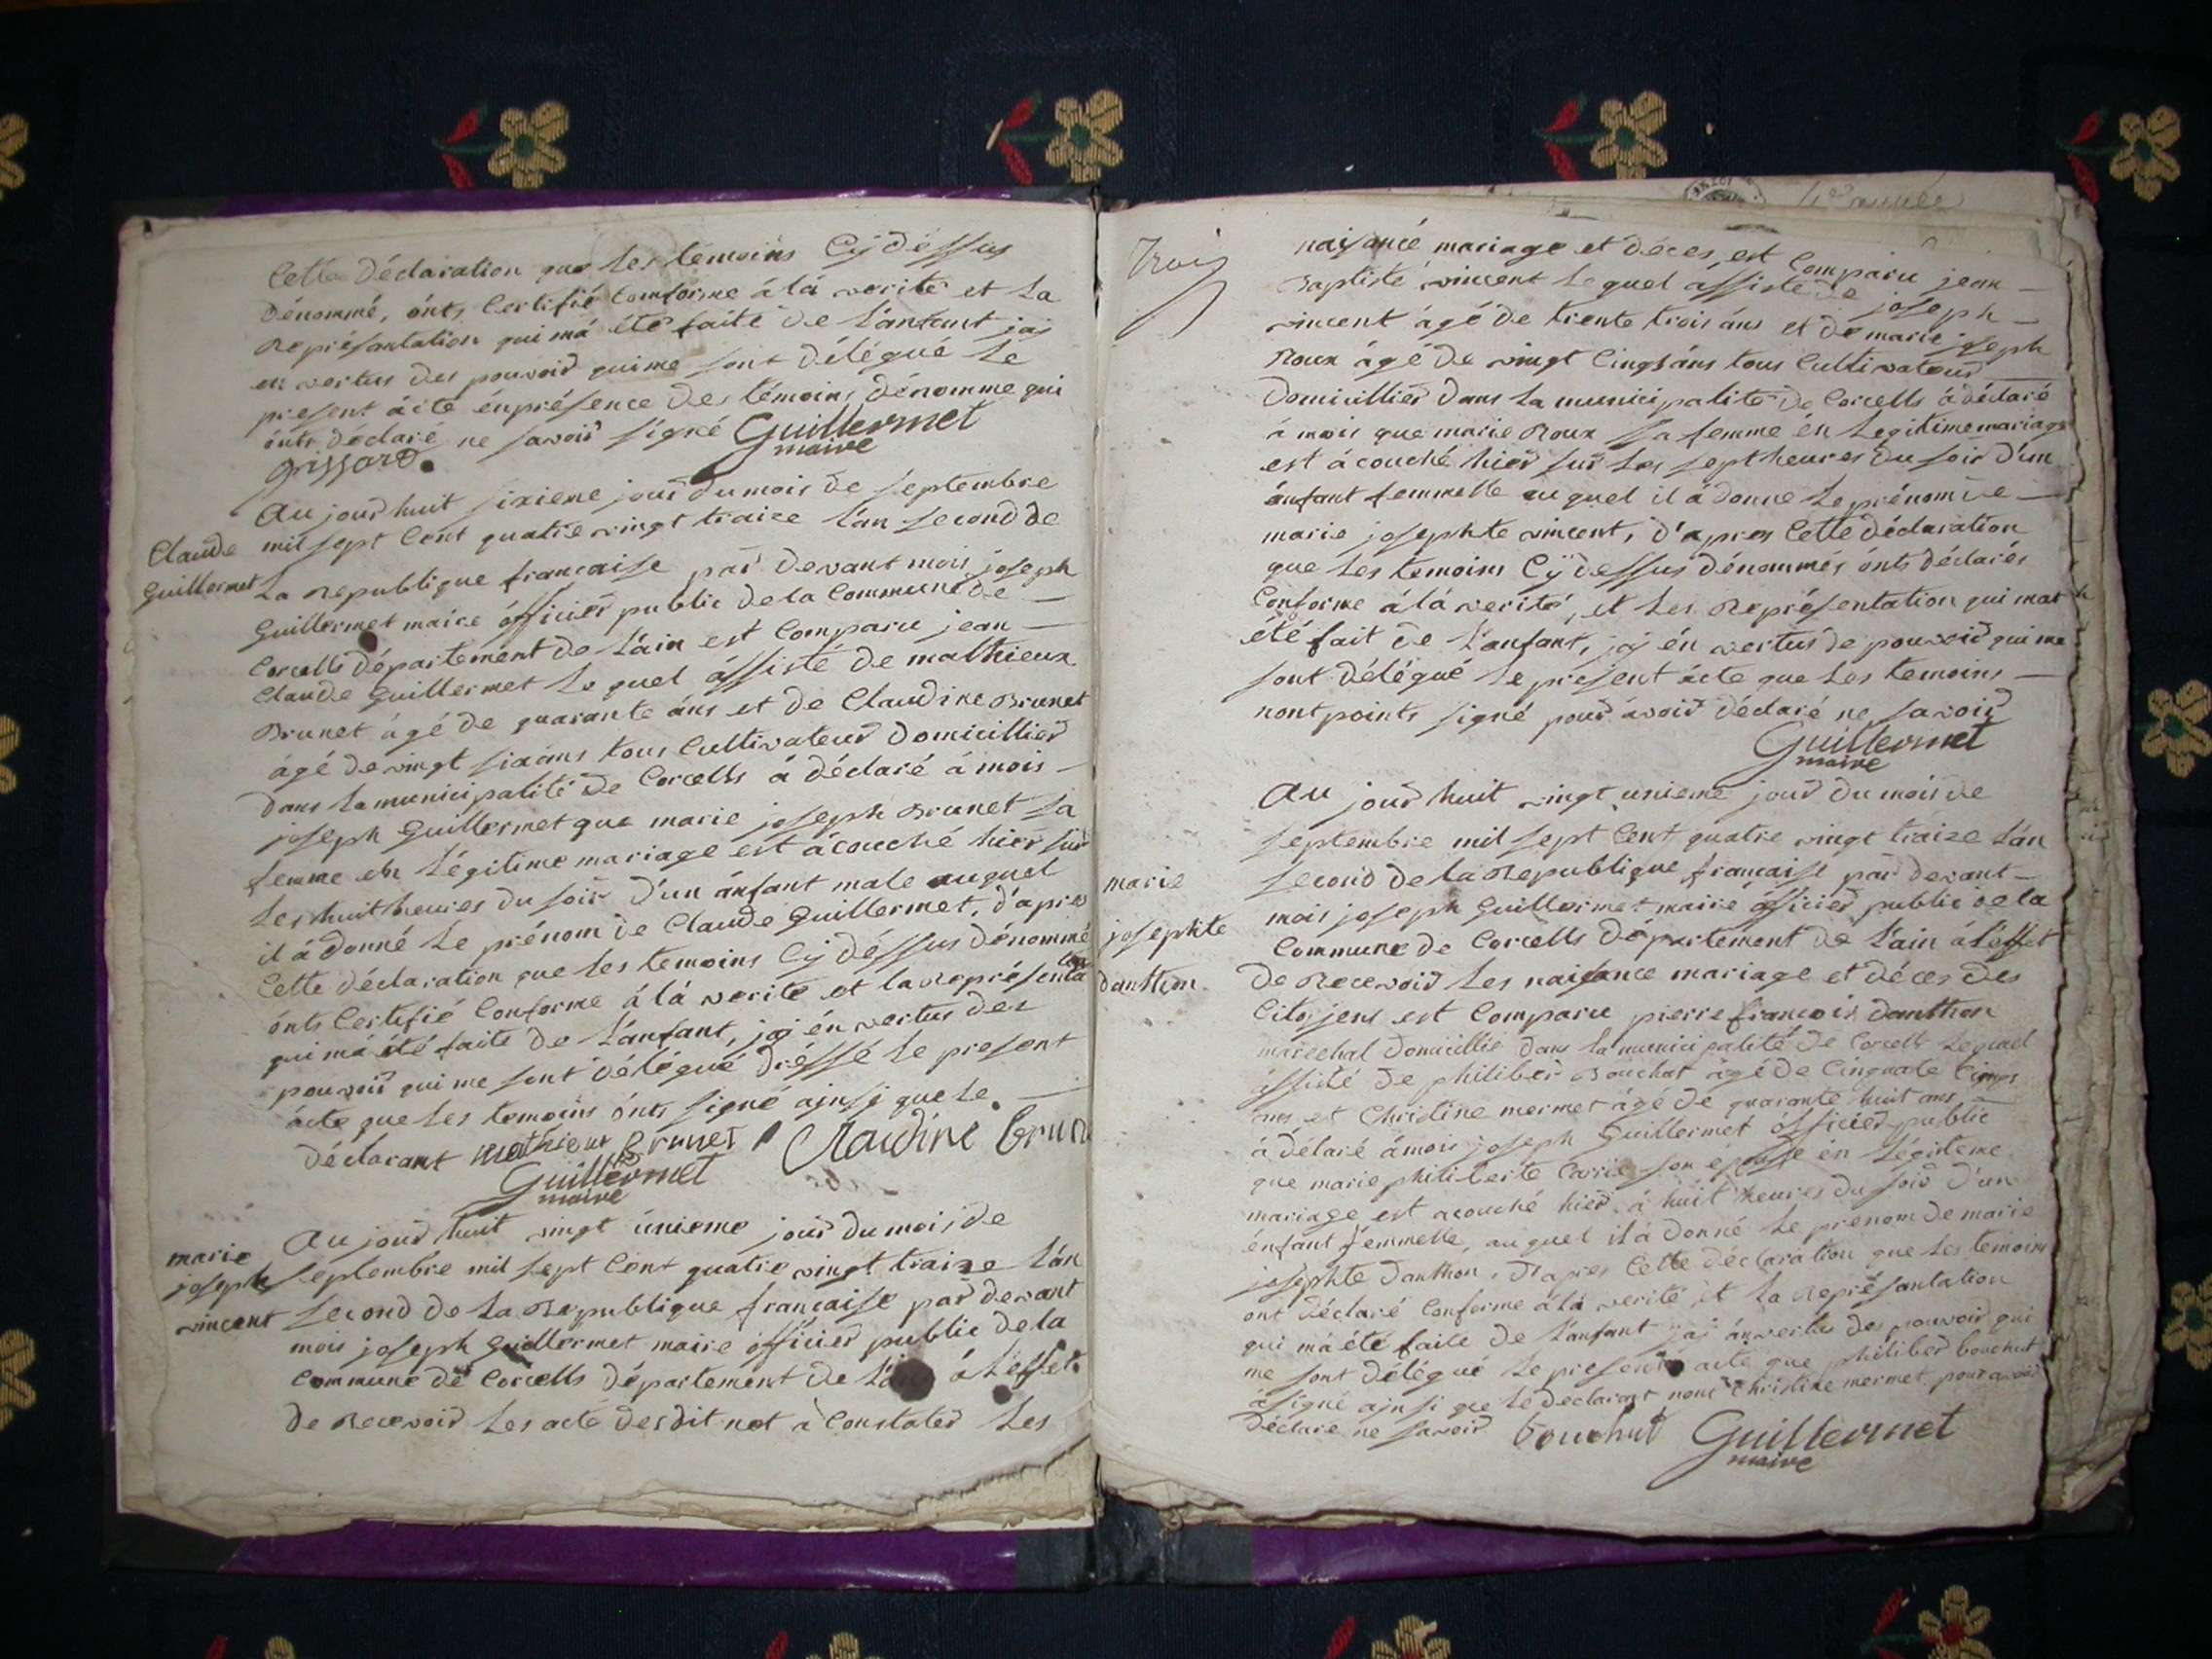 Cette déclaration que les témoins Cy déssus
dénommé, onts Certifié Comforme á lá verité et la
Représantation qui má été faite de l'anfant jai
en vertus des pouvoid qui me sont délégué le
présent ácte én présence des témoins dénomme qui
onts déclaré ne savoir signé Guillermet
maire
grissard.
Au jourd huit sixieme jour du mois de septembre
mil sept Cent quatre vingt traize l'an second de
Claude
Guillermet
la Republique francaise par devant mois joseph
Guillermet maire officier public de la Commune de
Corcells département de l'ain est Comparu jean
Claude Guillermet le quel ássisté de mathieux
Brunet ágé de quarante áns et de Claudine Brunet
ágé de vingt six áns tous Cultivateur domicillier
dans la municipalité de Corcells á déclaré á mois
joseph Guillermet que marie joseph Brunet sa
femme en légitime mariage est ácouché hier sur
les huit heures du soir d'un ánfant male auquel
il á donné le prénom de Claude Guillermet, d'apres
Cette déclaration que les temoins Cy déssus dénommé
onts Certifié Conforme á lá verité et la représenta
tion
qui má été faite de l'anfant, jai én vertus des
pouvoir qui me sont délégué dréssé le present
ácte que les temoins onts signé ajnsi que le
déclarant mathieux Brunet Claudine brun
Guillermet
maire
marie
joseph
vincent
Au jourd huit vingt únieme jour du mois de
septembre mil sept Cent quatre vingt traize l'án
second de la Republique francaise par devant
mois joseph Guillermet maire officier public de la
Commune de Corcells département de á l'effet
de Recevoir les acte desdit not à Constater les
trois
naisance mariage et déces est Comparu jean
Baptiste vincent le quel assisté de joseph
vincent ágé de trente trois áns et de marie joseph
Roux ágé de vingt Cinqs áns tous Cultivateur
domicillier dans la municipalité de Corcells á déclaré
á mois que marie Roux sa femme én legitime mariage
est ácouché hier sur les sept heures du soir d'un
ánfant femmelle au quel il á donne le prénom de
marie josephte vincent, d'apres Cette déclaration
que les temoins Cy dessus dénommés onts déclarés
Conforme á lá verité, et les Représentation qui mat
été fait de l'anfant, jai én vertus de pouvoid qui me
sont délégué le présent ácte que les temoins
nont points signé pour ávoir déclaré ne savoir
Guillermet
maire
marie
josephte
danthon
Au jourd huit vingt unieme jour du mois de
septembre mil sept Cent quatre vingt traize l'án
second de la Republique francaise par devant
mois joseph Guillermet maire officier public de la
Commune de Corcells département de l'ain á l'éffet
de Recevoir les naisance mariage et déces des
Citojens est Comparu pierre francois danthon
marechal domicillié dans la municipalité de Corcells lequel
ássisté de philiber Bouchut ágé de Cinquate Cinqs
ans et Christine mermet ágé de quarante huit ans
á délaré ámois joseph Guillermet officier public
que marie philiberte Carrie son épouse én légiteme
mariage est acouché hier á huit heures du soir d'un
énfant femmelle, au quel il á donné le prenom de marie
josephte danthon, d'apres Cette déclaration que les temoins
ont déclaré Conforme á lá verité et la représantation
qui má été faite de l'anfant jai ánvertus des pouvoir qui
me sont délégué le present acte que philiber bouchut
á signé ajnsi que le déclarant, nont Christine mermet pour avoir
déclaré ne savoir bouchut Guillermet
maire